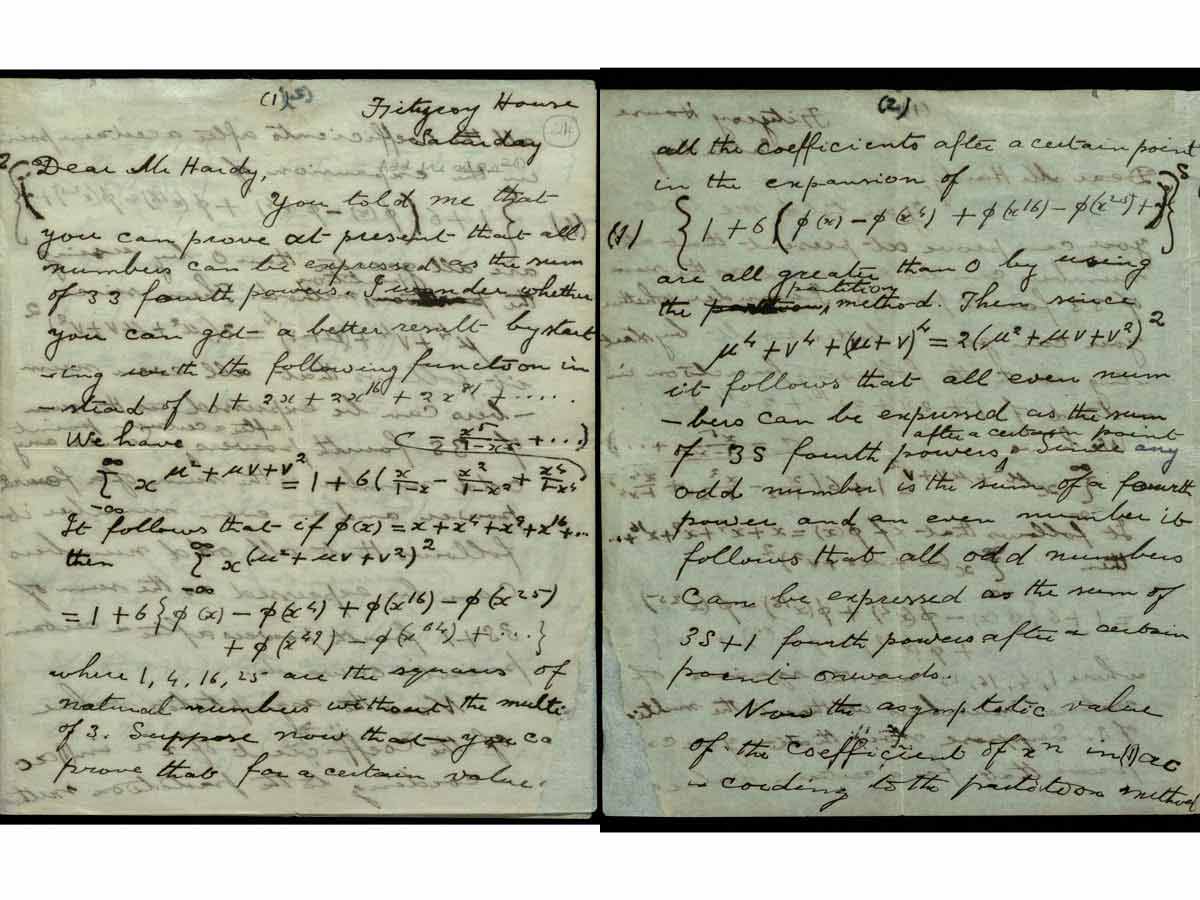 (1)
Fitzroy House
Saturday
Dear Mr Hardy,
You told me that
you can prove at present that all
numbers can be expressed as the sum
of 33 fourth powers. I wonder whether
you can get a better result by start
-ting with the following function in
-stead of 1 + 2x + 2x^16 + 2x^81 + .....
We have
Σ_{-∞}^{∞} x^{μ² + μν + ν²} = 1 + 6( x/(1-x) - x²/(1-x²) + x⁴/(1-x⁴)
- x⁵/(1-x⁵) + ...)
It follows that if φ(x) = x + x⁴ + x⁹ + x^16 + ...
then Σ_{-∞}^{∞} x^{(μ² + μν + ν²)²}
= 1 + 6{φ(x) - φ(x⁴) + φ(x^16) - φ(x^25)
+ φ(x^49) - φ(x^64) + ...}
where 1, 4, 16, 25 are the squares of
natural numbers without the multi
of 3. Suppose now that you ca
prove that for a certain value
(2)
all the coefficients after a certain point
in the expansion of
(1) {1 + 6(φ(x) - φ(x⁴) + φ(x^16) - φ(x^25) + )}^s
are all greater than 0 by using
the partition method. Then since
μ⁴ + ν⁴ + (μ+ν)⁴ = 2(μ² + μν + ν²)²
it follows that all even num
-bers can be expressed as the sum
of 3s fourth powers after a certain point. Since any
odd number is the sum of a fourth
power and an even number it
follows that all odd numbers
can be expressed as the sum of
3s+1 fourth powers after a certain
point onwards.
Now the asymptotic value
of the coefficient of xⁿ in (1) ac
-cording to the partition method